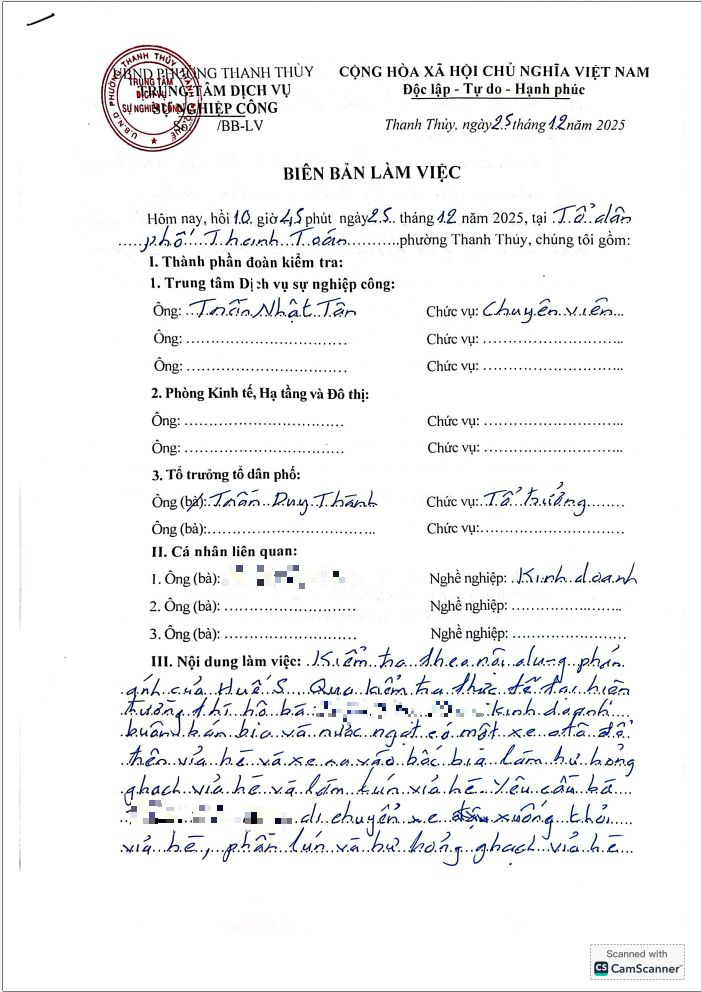 UBND PHƯỜNG THANH THỦY
TRUNG TÂM DỊCH VỤ
SỰ NGHIỆP CÔNG
Số: /BB-LV
CỘNG HÒA XÃ HỘI CHỦ NGHĨA VIỆT NAM
Độc lập - Tự do - Hạnh phúc
Thanh Thủy, ngày 25 tháng 12 năm 2025
U.B.N.D PHƯỜNG THANH THỦY
TRUNG TÂM
DỊCH VỤ
SỰ NGHIỆP CÔNG
BIÊN BẢN LÀM VIỆC
Hôm nay, hồi 10 giờ 45 phút ngày 25 tháng 12 năm 2025, tại Tổ dân
phố Thanh Toàn phường Thanh Thủy, chúng tôi gồm:
I. Thành phần đoàn kiểm tra:
1. Trung tâm Dịch vụ sự nghiệp công:
Ông: Trần Nhật Tân Chức vụ: Chuyên viên
Ông: Chức vụ:
Ông: Chức vụ:
2. Phòng Kinh tế, Hạ tầng và Đô thị:
Ông: Chức vụ:
Ông: Chức vụ:
3. Tổ trưởng tổ dân phố:
Ông (bà): Trần Duy Thành Chức vụ: Tổ trưởng
Ông (bà): Chức vụ:
II. Cá nhân liên quan:
1. Ông (bà): Nghề nghiệp: Kinh doanh
2. Ông (bà): Nghề nghiệp:
3. Ông (bà): Nghề nghiệp:
III. Nội dung làm việc: Kiểm tra theo nội dung phản
ánh của Huế S. Qua kiểm tra thực tế tại hiện
trường thì hộ bà kinh doanh
buôn bán bia và nước ngọt có một xe ô tô đổ
trên vỉa hè và xe ra vào bốc bia làm hư hỏng
ghạch vỉa hè và làm lún vỉa hè. Yêu cầu bà
di chuyển xe xuống khỏi
vỉa hè, phần lún và hư hỏng ghạch vỉa hè
Scanned with
CS CamScanner